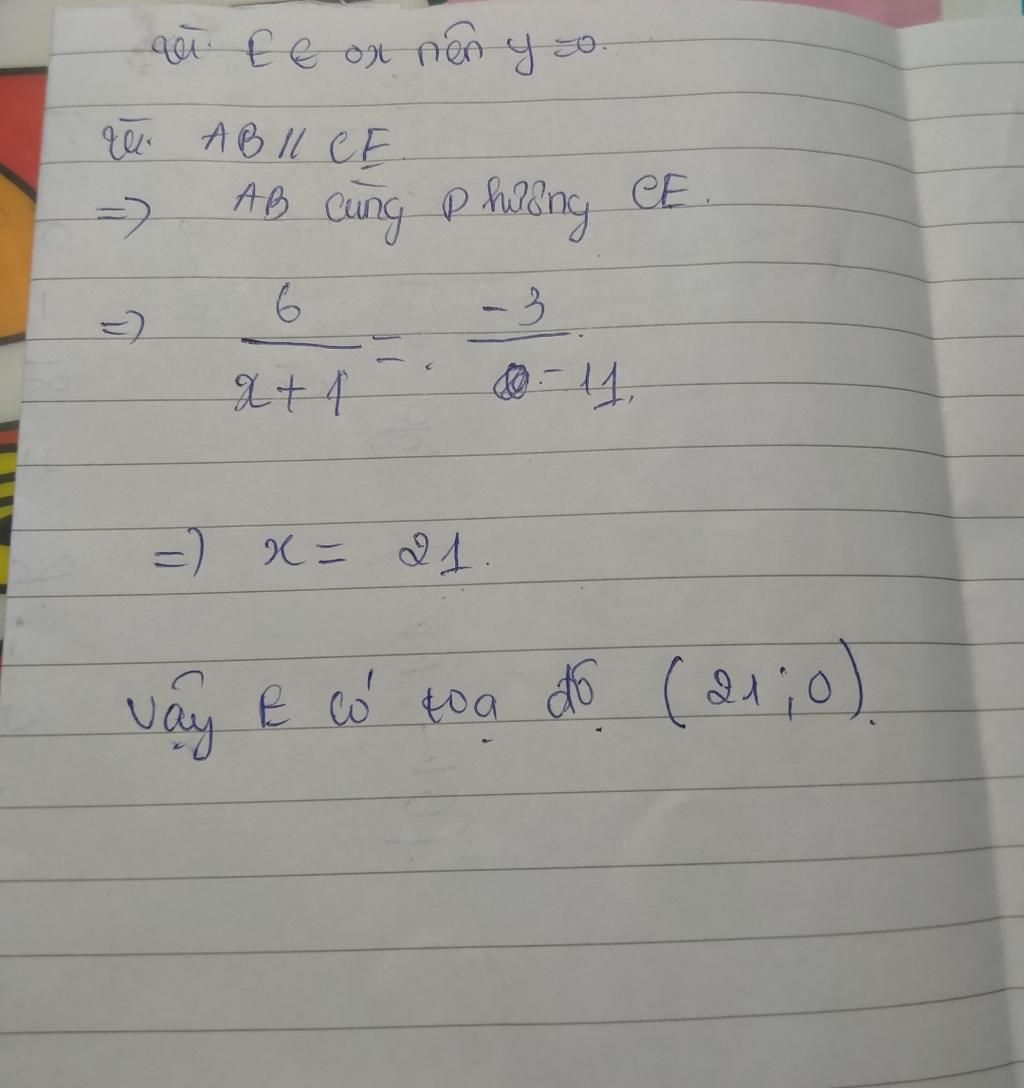 Vì E ∈ ox nên y = 0.
Vì AB // CE
=> AB cùng phương CE.
=> 6/x+1 = -3/-11
=> x = 21.
Vậy E có toạ độ (21; 0).